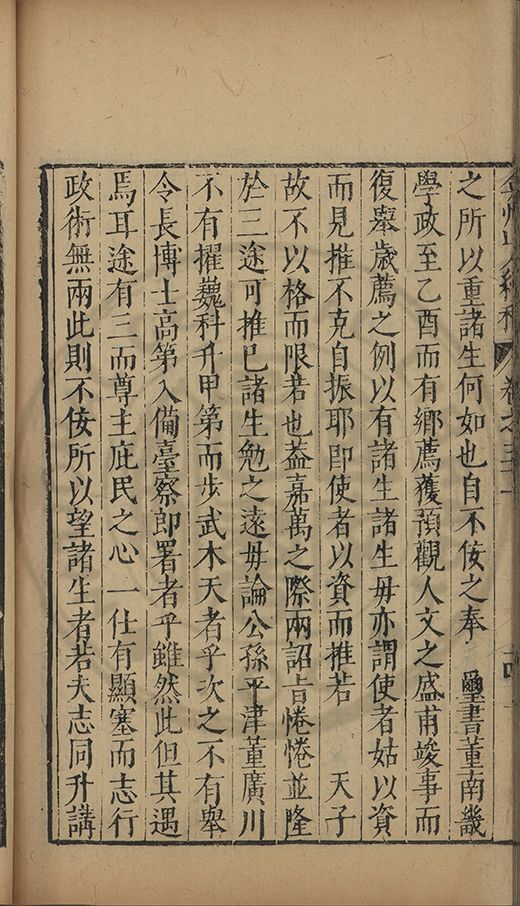 卷之三十
之所以重諸生何如也自不佞之奉 璽書董南畿
學政至乙酉而有鄉薦獲預觀人文之盛甫竣事而
復舉歲薦之例以有諸生諸生毋亦謂使者姑以資
而見推不克自振耶即使者以資而推若 天子
故不以格而限若也葢嘉萬之際兩詔旨惓惓並隆
於三途可推已諸生勉之遠毋論公孫平津董廣川
不有擢巍科升甲第而步武木天者乎次之不有舉
令長博士高第入備臺察郎署者乎雖然此但其遇
焉耳途有三而尊主庇民之心一仕有顯塞而志行
政術無兩此則不佞所以望諸生者若夫志同升講